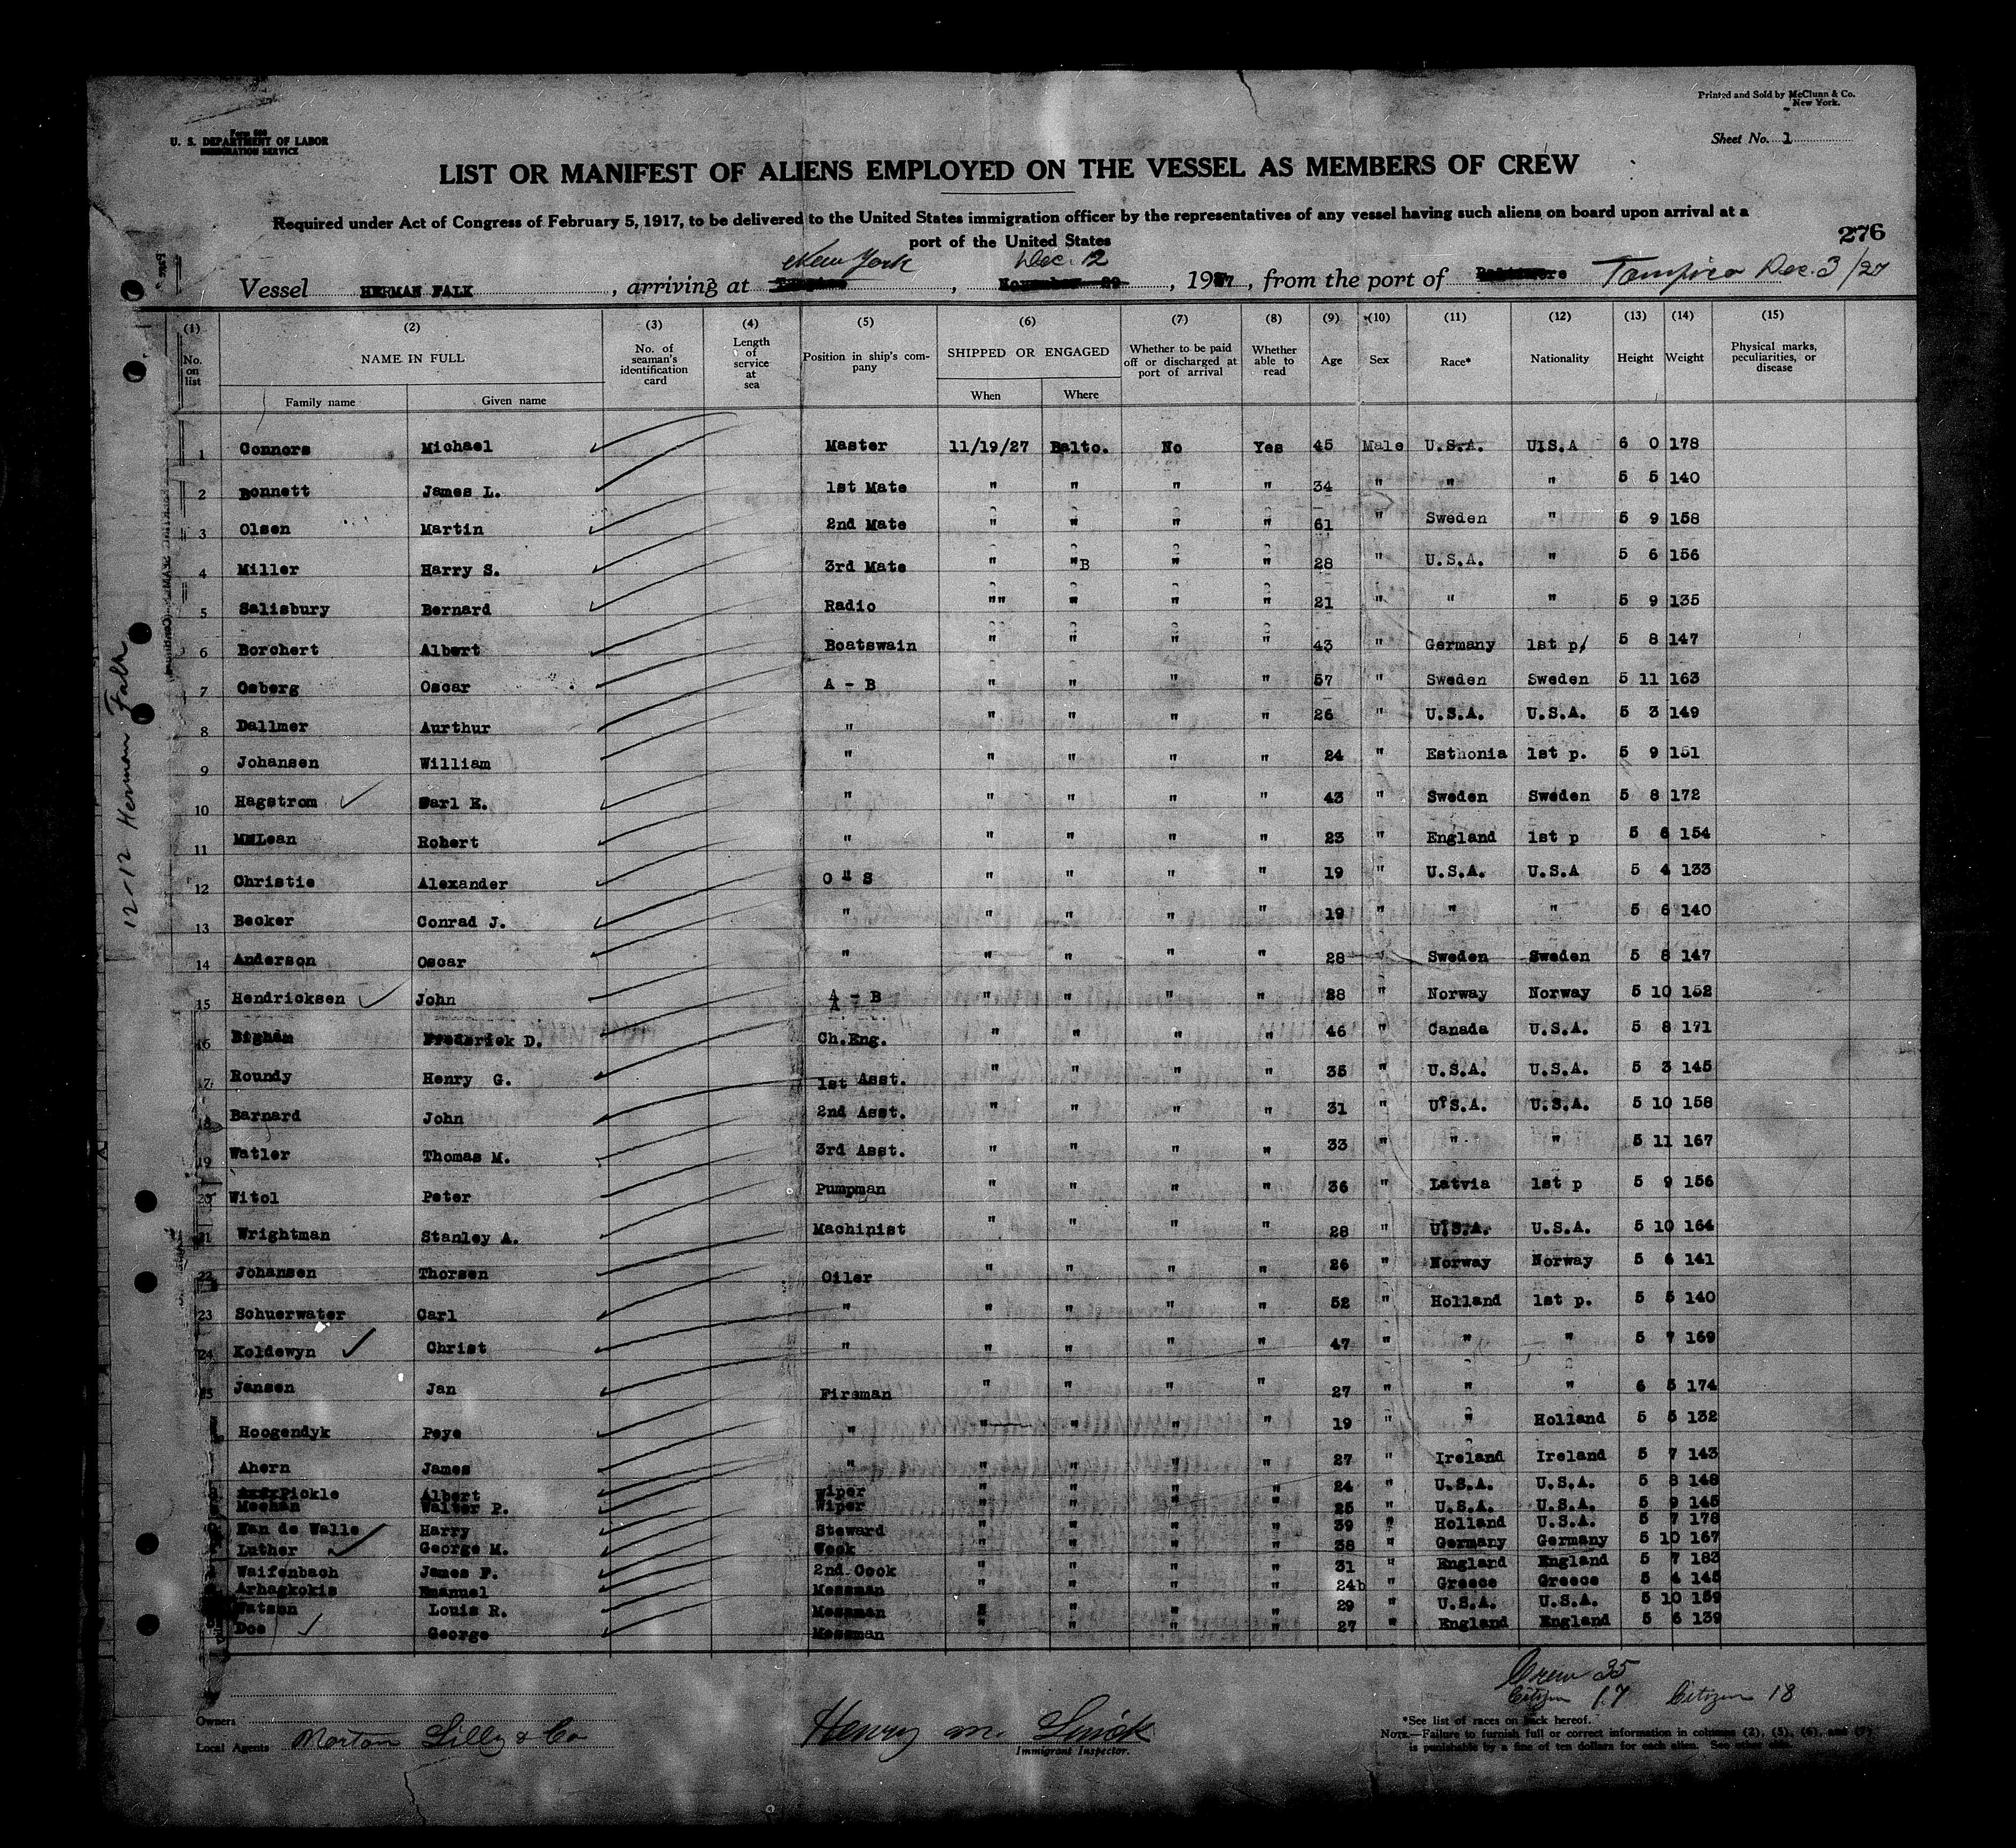 Form 689
U. S. DEPARTMENT OF LABOR
IMMIGRATION SERVICE
Printed and Sold by McClunn & Co.
New York.
Sheet No. 1
LIST OR MANIFEST OF ALIENS EMPLOYED ON THE VESSEL AS MEMBERS OF CREW
Required under Act of Congress of February 5, 1917, to be delivered to the United States immigration officer by the representatives of any vessel having such aliens on board upon arrival at a
port of the United States
276
New York Dec. 12
Vessel HERMAN FALK, arriving at Tampico, November 29, 1927, from the port of Baltimore Tampico Dec. 3/27
(1) (2) (3) (4) (5) (6) (7) (8) (9) (10) (11) (12) (13) (14) (15)
No. on list NAME IN FULL No. of seaman's identification card Length of service at sea Position in ship's company SHIPPED OR ENGAGED Whether to be paid off or discharged at port of arrival Whether able to read Age Sex Race* Nationality Height Weight Physical marks, peculiarities, or disease
Family name Given name When Where
1 Connors Michael Master 11/19/27 Balto. No Yes 45 Male U.S.A. U.S.A 6 0 178
2 Bonnett James L. 1st Mate " " " " 34 " " " 5 5 140
3 Olsen Martin 2nd Mate " " " " 61 " Sweden " 5 9 158
4 Miller Harry S. 3rd Mate " "B " " 28 " U.S.A. " 5 6 156
5 Salisbury Bernard Radio "" " " " 21 " " " 5 9 135
6 Borchert Albert Boatswain " " " " 43 " Germany 1st p/ 5 8 147
7 Osberg Oscar A - B " " " " 57 " Sweden Sweden 5 11 163
8 Dallmer Aurthur " " " " " 26 " U.S.A. U.S.A. 5 3 149
9 Johansen William " " " " " 24 " Esthonia 1st p. 5 9 151
10 Hagstrom Earl E. " " " " " 43 " Sweden Sweden 5 8 172
11 McLean Robert " " " " " 23 " England 1st p 5 6 154
12 Christie Alexander O " S " " " " 19 " U.S.A. U.S.A 5 4 133
13 Becker Conrad J. " " " " " 19 " " " 5 6 140
14 Anderson Oscar " " " " " 28 " Sweden Sweden 5 8 147
15 Hendricksen John A - B " " " " 28 " Norway Norway 5 10 152
16 Bigham Frederick D. Ch.Eng. " " " " 46 " Canada U.S.A. 5 8 171
17 Roundy Henry G. 1st Asst. " " " " 35 " U.S.A. U.S.A. 5 3 145
18 Barnard John 2nd Asst. " " " " 31 " U.S.A. U.S.A. 5 10 158
19 Watler Thomas M. 3rd Asst. " " " " 33 " " " 5 11 167
20 Witol Peter Pumpman " " " " 36 " Latvia 1st p 5 9 156
21 Wrightman Stanley A. Machinist " " " " 28 " U.S.A. U.S.A. 5 10 164
22 Johansen Thorsen Oiler " " " " 26 " Norway Norway 5 6 141
23 Schuerwater Carl " " " " " 52 " Holland 1st p. 5 5 140
24 Koldewyn Christ " " " " " 47 " " " 5 7 169
25 Jansen Jan Fireman " " " " 27 " " " 6 5 174
Hoogendyk Peye " " " " " 19 " " Holland 5 5 132
Ahern James " " " " " 27 " Ireland Ireland 5 7 143
Pickle Albert Wiper " " " " 24 " U.S.A. U.S.A. 5 8 148
Meehan Walter P. Wiper " " " " 25 " U.S.A. U.S.A. 5 9 145
Van de Walle Harry Steward " " " " 39 " Holland U.S.A. 5 7 178
Luther George M. " " " " 38 " Germany Germany 5 10 167
Waifenbach James F. 2nd Cook " " " " 31 " England England 5 7 183
Arhagkokis Emanuel Messman " " " " 24b " Greece Greece 5 4 145
Watson Louis R. Messman " " " " 29 " U.S.A. U.S.A. 5 10 159
Doe George Messman " " " " 27 " England England 5 6 139
12-12 Herman Falk
Crew 35
Citizen 17 Citizen 18
Owners
Local Agents Norton Lilly & Co
Henry M.
Immigrant Inspector.
*See list of races on back hereof.
NOTE.—Failure to furnish full or correct information in columns (2), (5), (6), and (7)
is punishable by a fine of ten dollars for each alien. See other side.